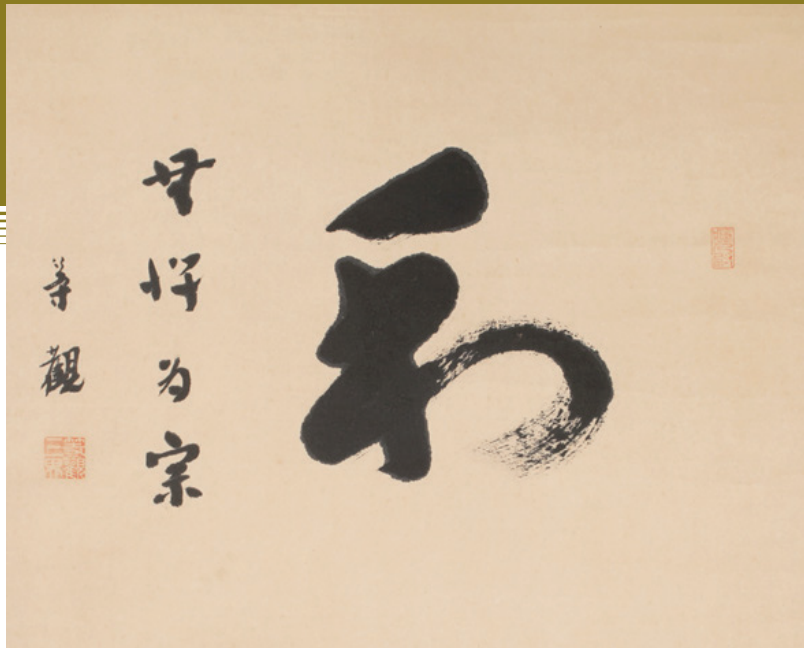 和
無忤為宗
等觀